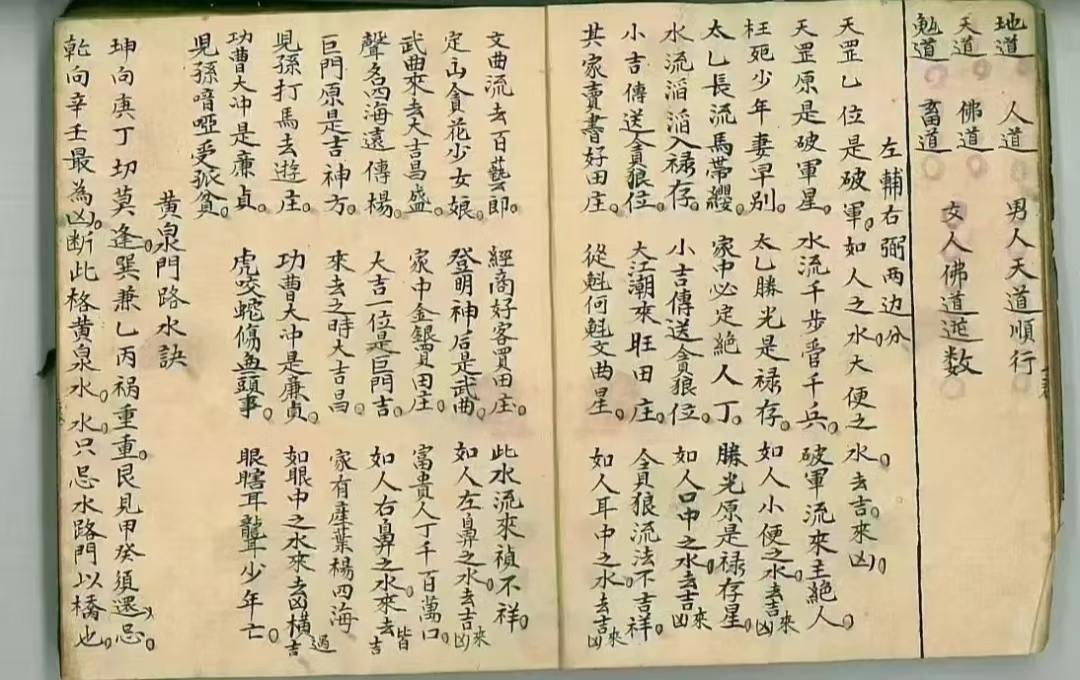 地道 人道 男人天道順行
天道 佛道 女人佛道逆数
鬼道 畜道
左輔右弼两边分
天罡乙位是破軍 如人之水大便之水去吉來凶
天罡原是破軍星 水流千步晉千兵 破軍流來主絕人
枉死少年妻早别 太乙勝光是禄存 如人小便之水去吉來凶
太乙長流馬帶纓 家中必定絕人丁 勝光原是禄存星
水流滔滔入禄存 小吉傳送貪狼位 如人口中之水去吉來凶
小吉傳送貪狼位 大江潮來旺田庄 貪狼流法不吉祥
共家賣書好田庄 從魁何魁文曲星 如人耳中之水去吉來凶
文曲流去百藝郎 經商好客買田庄 此水流來禎不祥
定主貪花少女娘 登明神后是武曲 如人左鼻之水去吉來凶
武曲來去大吉昌盛 家中金銀買田庄 富貴人丁千百萬口
聲名四海遠傳楊 大吉一位是巨門吉 如人右鼻之水來去皆吉
巨門原是吉神方 來去之時大吉昌 家有產葉楊四海
見孫打馬去遊庄 功曹大冲是廉貞 如眼中之水來去凶橫過吉
功曹大冲是廉貞 虎咬蛇傷血頭事 眼瞎耳聾少年亡
見孫喑啞受孤貧
黄泉門路水訣
坤向庚丁切莫逢 巽兼乙丙祸重重 艮見甲癸須還忌
乾向辛壬最為凶 断此格黄泉水 水只忌水路門以橋也